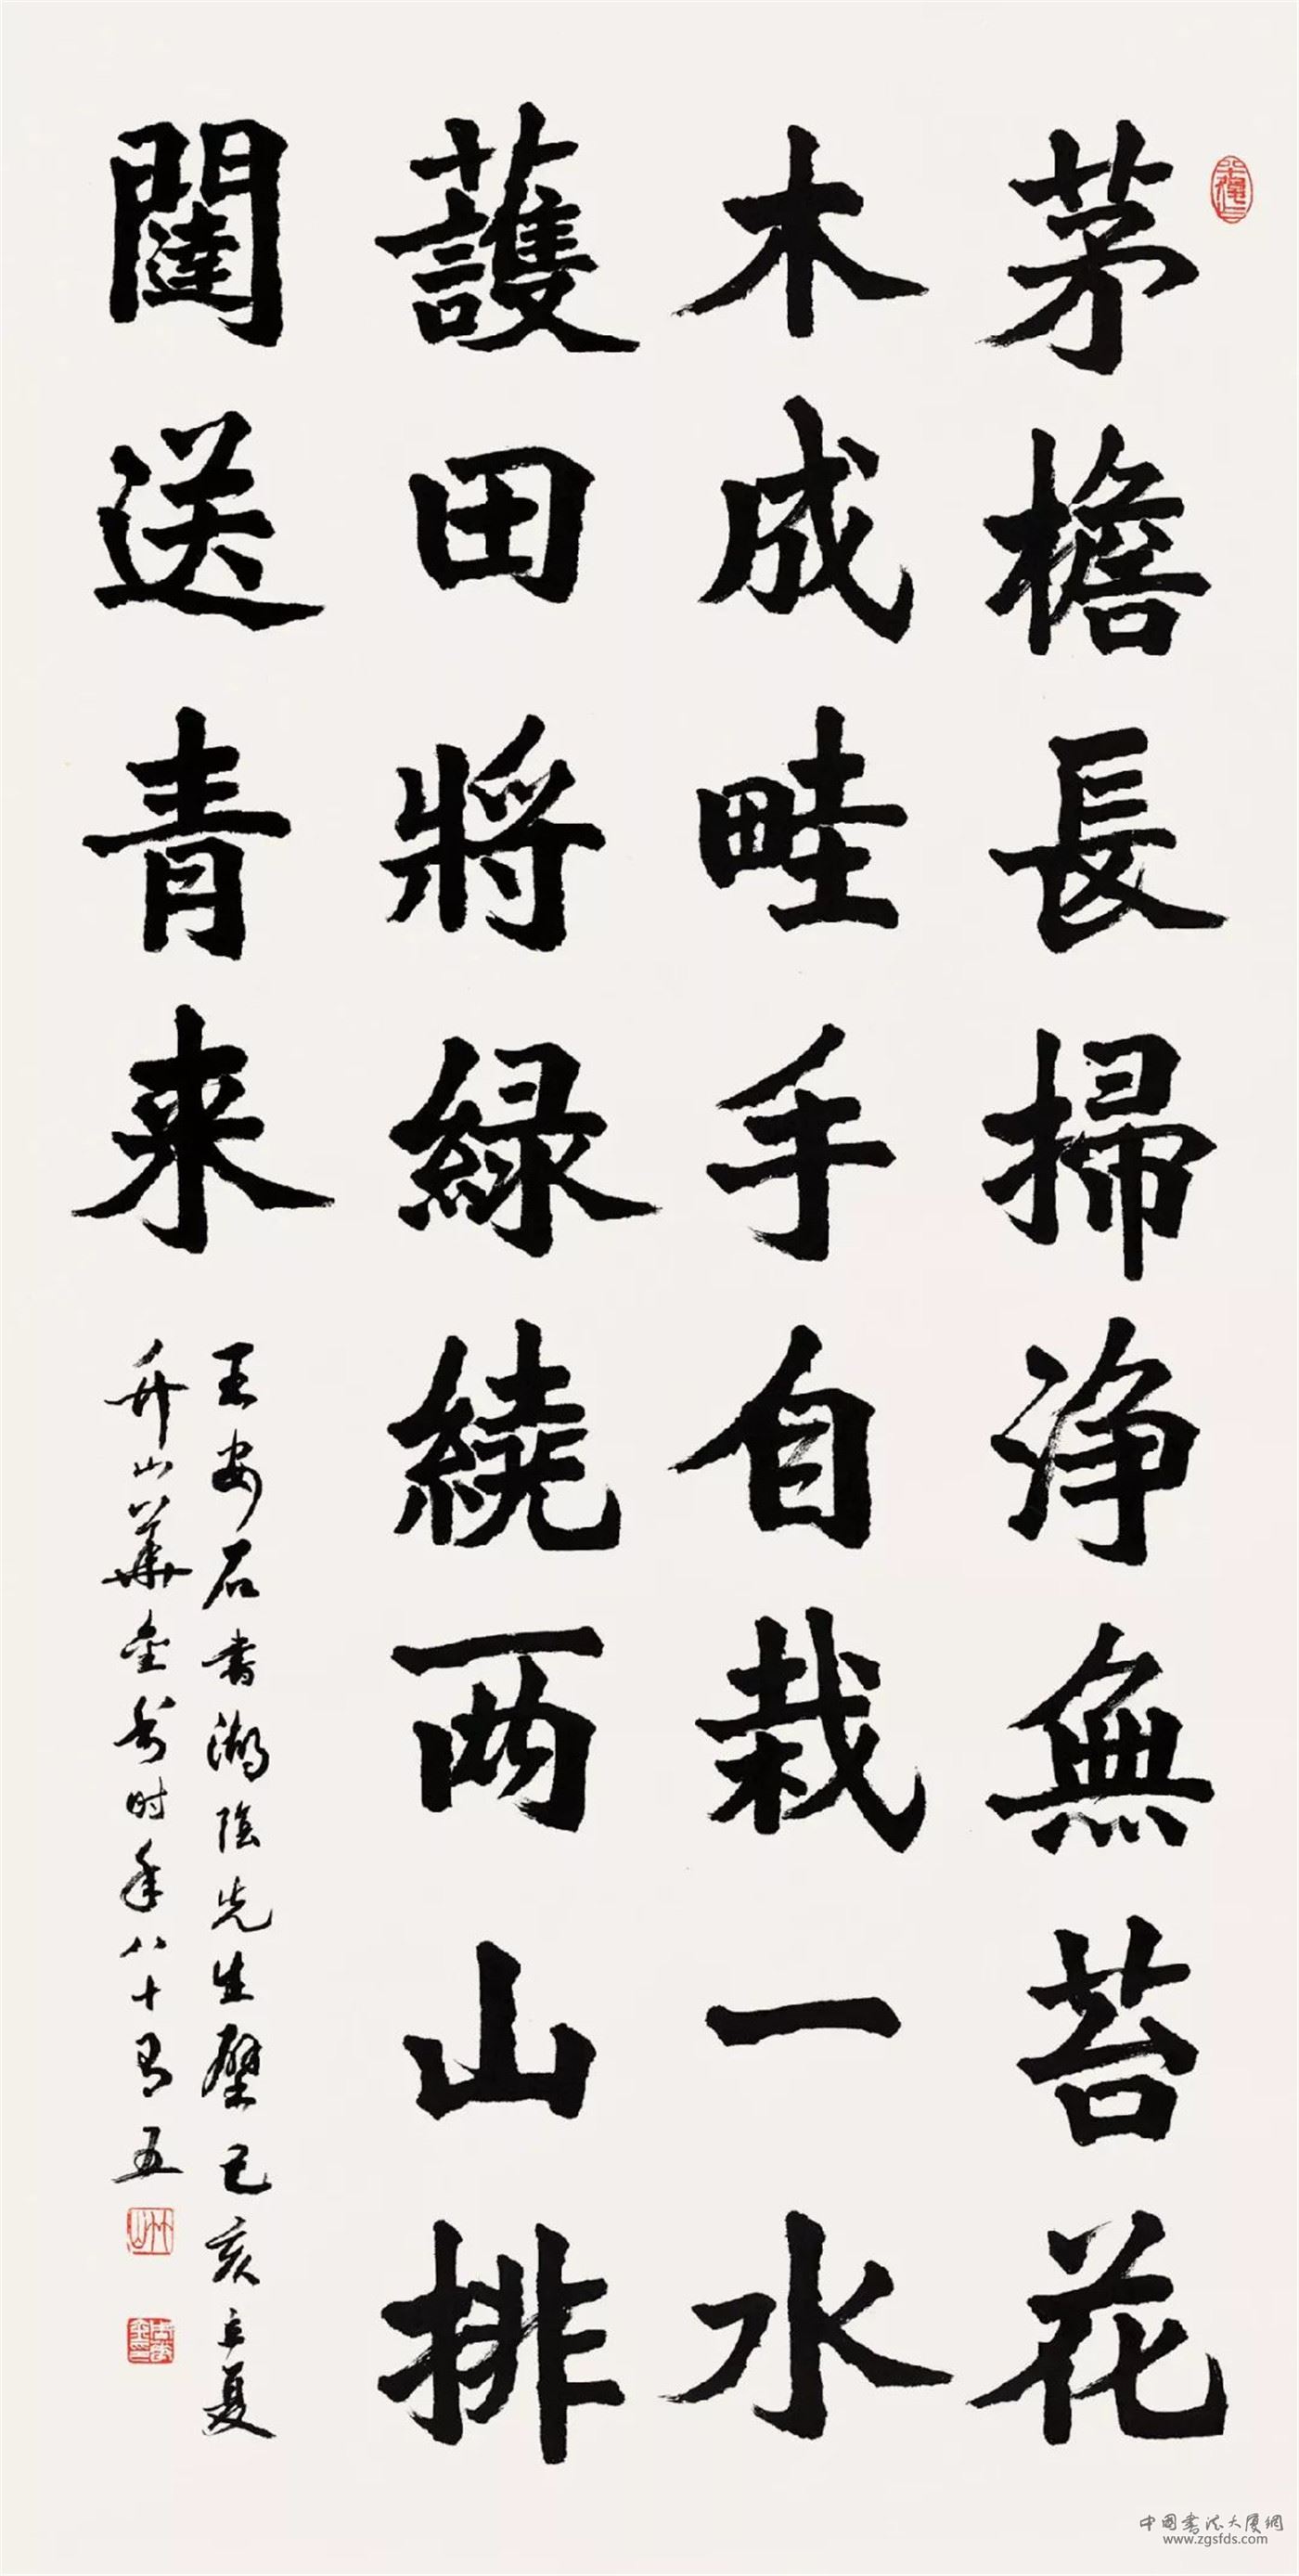 茅檐長掃浄無苔花
木成畦手自栽一水
䕶田將緑繞兩山排
闥送青来
王安石書湖陰先生壁己亥立夏
山華奎书时年八十有五
中国書法大厦網
www.zgsfds.com